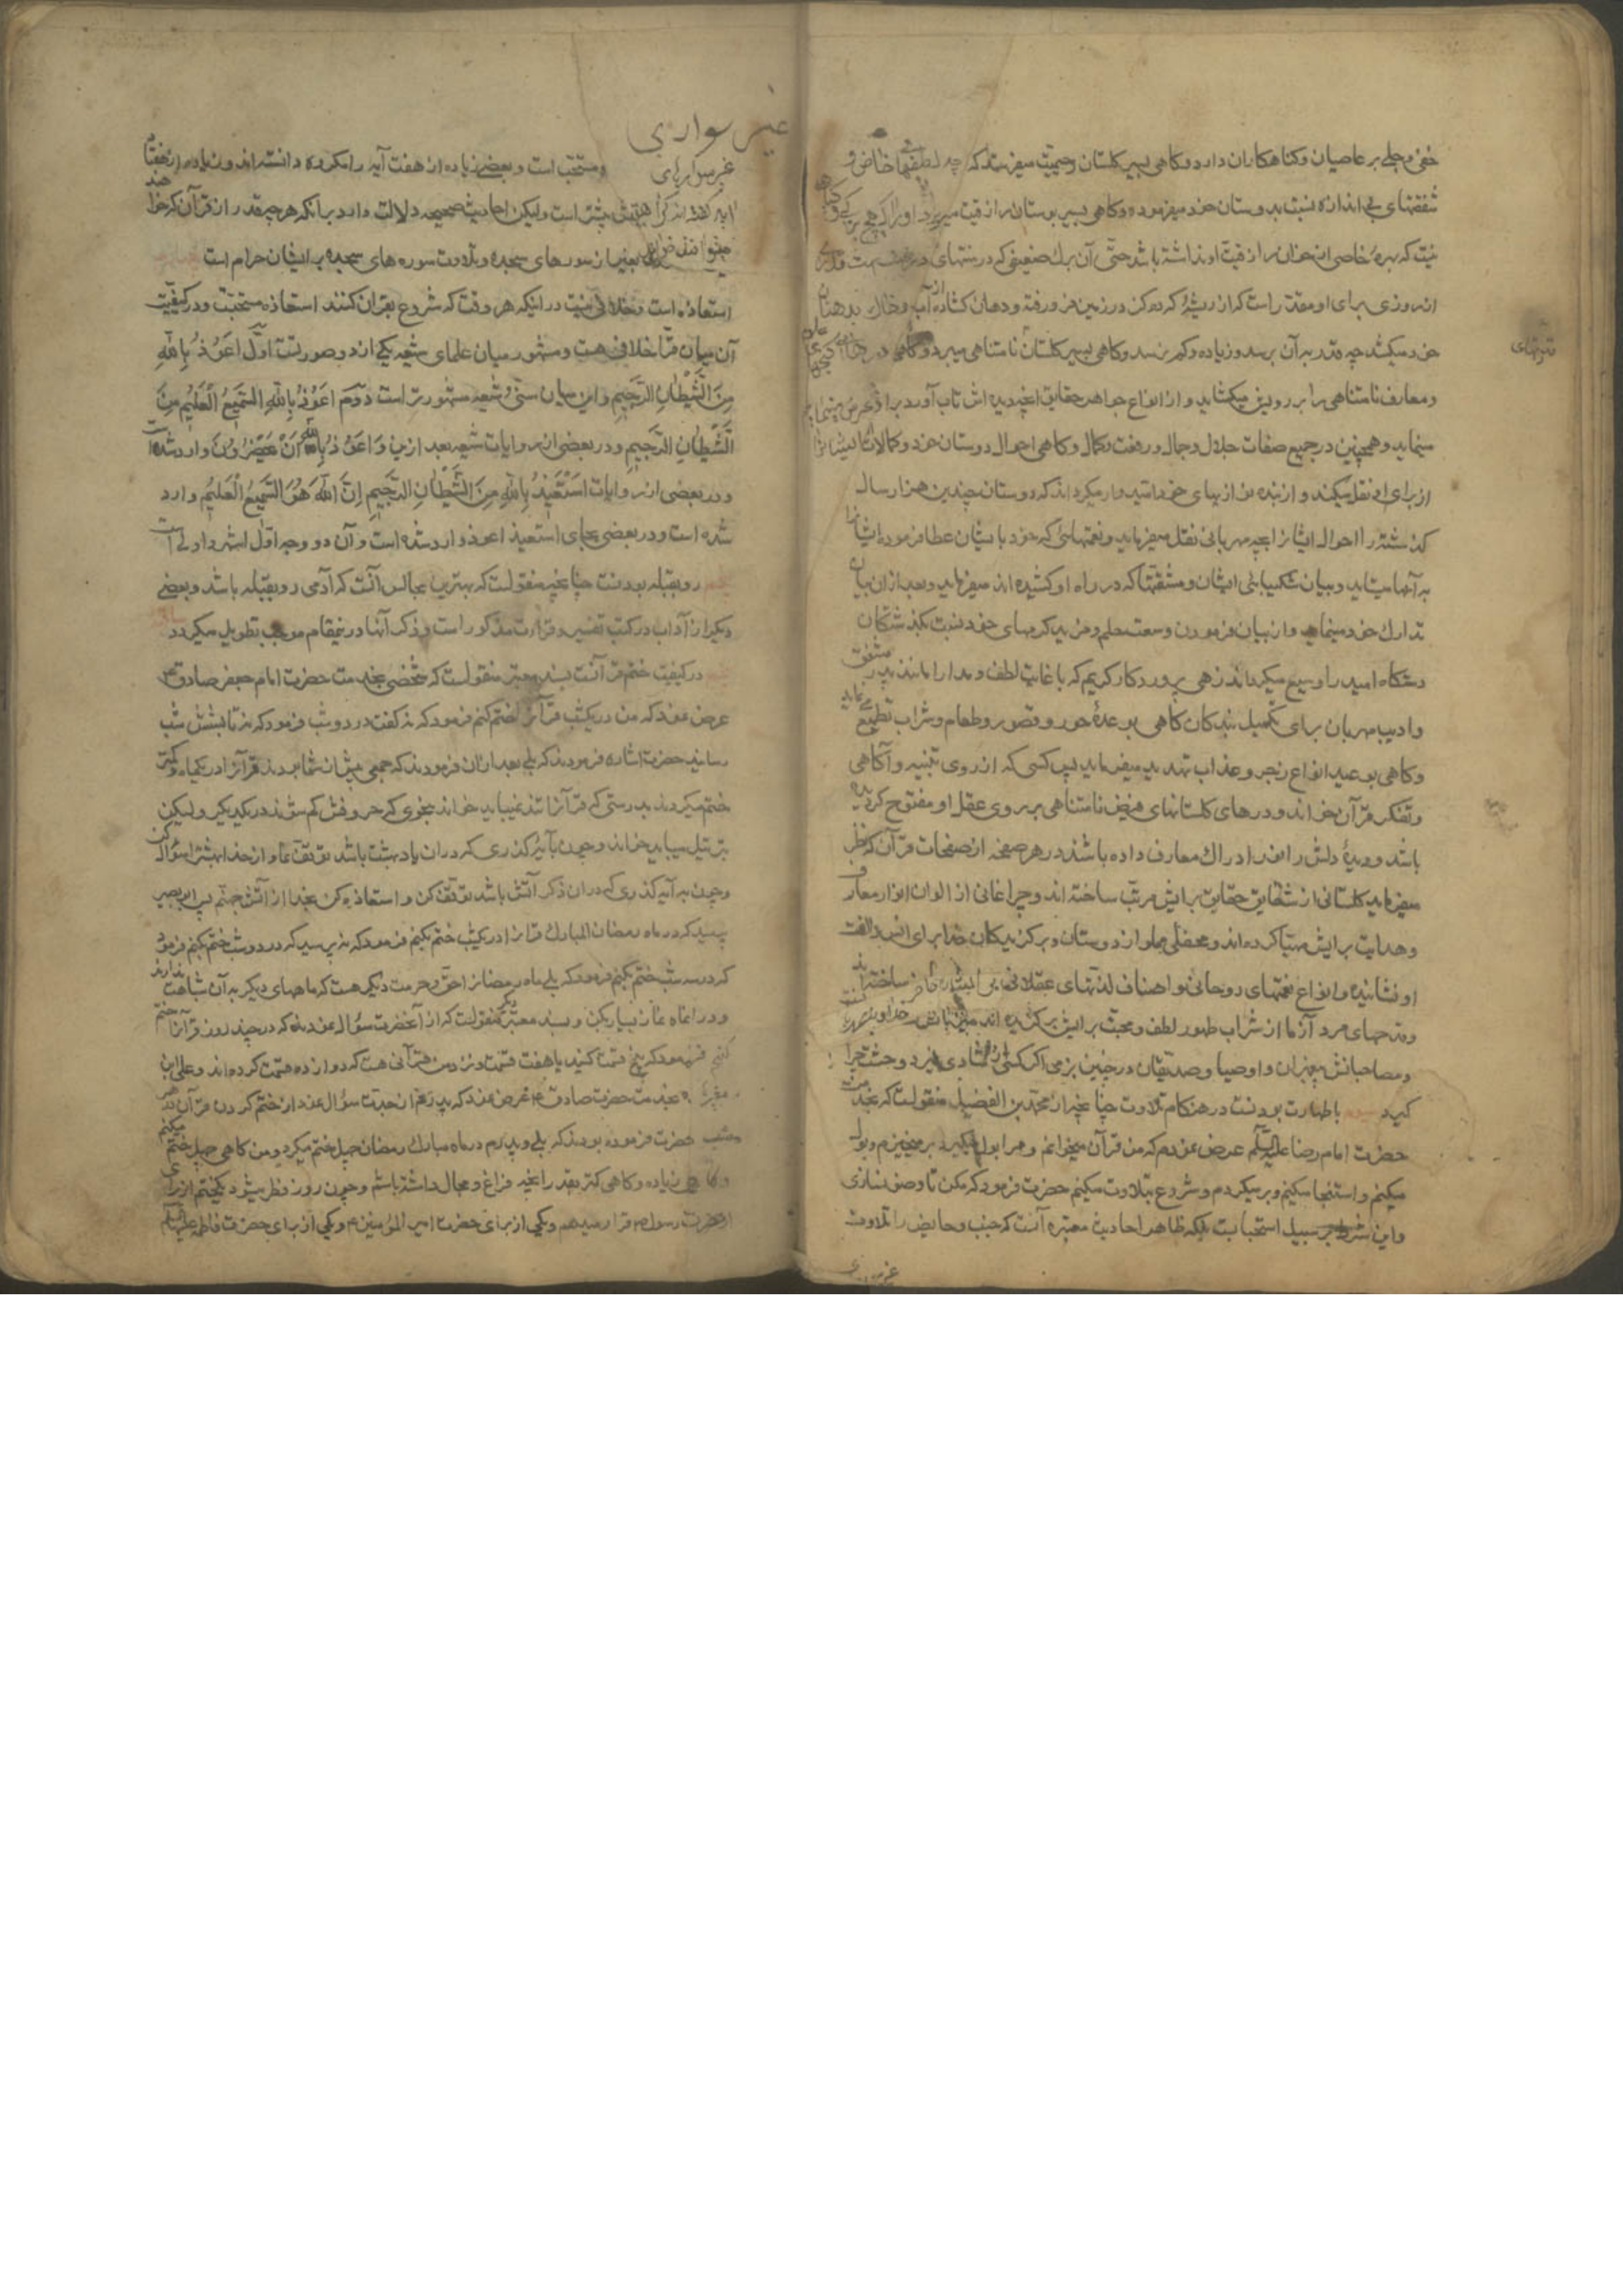 خفی و جلی بر عاصیان و کناهکاران دارد و کاهی بسیر کلستان رحیمیت میفرستد که چه لطفهای خاص و
شفقتهای بی اندازه نسبت بدوستان خود میفرموده و کاهی بسیر بوستان رازقیت میبرد و او را که هیچ برکی و کیاهی
نیست که بهره خاصی از خوان رازقیت او نداشته باشد حتی آن برك ضعیفی که در منتهای درخت است قدری
از روزی برای او مقدر است که از ریشهٔ که ده کز در زمین فرو رفته و دهان کشاده از آب و خاك بدهان
خود میکشد چه قدر به آن برسد و زیاده و کم نرسد و کاهی بسیر کلستان نامتناهی میبرد و کاهی در
و معارف نامتناهی را بر رویش میکشاید و از انواع جواهر حقایق آنچه دیده اش تاب آورد بر او عرض مینماید
مینماید و همچنین در جمیع صفات جلال و جمال و رفعت و کمال و کاهی احوال دوستان خود و کمالات ایشانرا
از برای او نقل میکند و از بنده نوازیهای خود امیدوار میکرداند که دوستان چندین هزار ساله
کذشته را احوال ایشانرا بچه مهربانی نقل میفرماید و نعمتهائی که خود با ایشان عطا فرموده ایشانرا
به آنها میستاید و بیان شکیبائی ایشان و مشقتها که در راه او کشیده اند میفرماید و بعد از آن بیان
تدارك خود مینماید و از بیان فرمودن وسعت علم و مزید کرمهای خود نسبت بکذشتکان
دستکاه امید را وسیع میکرداند زهی پروردکار کریم که با غایت لطف و مدارا مانند پدر مشفق
و ادیب مهربان برای تکمیل بندکان کاهی بوعدهٔ حور و قصور و طعام و شراب تطمیع می نماید
و کاهی بوعید انواع زجر و عذاب تهدید میفرماید پس کسی که از روی تنبیه و آکاهی
و تفکر قرآن بخواند و درهای کلستانهای فیض نامتناهی بر روی عقل او مفتوح کردیده
باشد و دیدهٔ دلش را نور ادراك معارف داده باشند در هر صفحه از صفحات قرآن که نظر
میفرماید کلستانی از شقایق حقایق برایش مرتب ساخته اند و چراغانی از الوان انوار معارف
و هدایت برایش مهیا کرده اند و محفلی مملو از دوستان و برکزیدکان خدا برای انس و الفت
او نشانیده و انواع نعمتهای روحانی و اصناف لذتهای عقلانی برای ایشان حاضر ساخته اند
و قدحهای مرد آزما از شراب طهور لطف و محبت برایش برکزیده اند میزبانش خداوند
و مصاحبانش پیغمبران و اوصیا و صدیقان در چنین بزمی اکر کسی را شادی نمیرد وحشت چرا
کیرد سیوم با طهارت بودنست در هنکام تلاوت چنانچه از محمد بن الفضیل منقولست که بخدمت
حضرت امام رضا علیه السلم عرض نمودم که من قرآن میخوانم و مرا بول میکیرد برمیخیزم و بول
میکنم و استنجا میکنم و برمیکردم و شروع بتلاوت میکنم حضرت فرمود که مکن تا وضو نسازی
و این شرط بر سبیل استحبابست بلکه ظاهر احادیث معتبره آنست که جنب و حایض را تلاوت
شونهای
غیر سواری
غیر سوارهای و مستحبّ است و بعضی زیاده از هفت آیه را مکروه دانسته اند و زیاده از هفتاد
آیه کفته اند کراهتش بیشتر است ولیکن احادیث صحیحه دلالت دارد برانکه هر چه قدر از قرآن که خواهند
میتوانند خواند بغیر از سورهای سجده و تلاوت سوره های سجده بر ایشان حرام است
استعاذه است و خلافی نیست در اینکه هر وقت که شروع بقران کنند استعاذه مستحبّست و در کیفیّت
آن میان قرّا خلافی هست و مشهور میان علمای شیعه یکی از دو صورتست اوّل اَعُوذُ بِاللهِ
مِنَ الشَّیْطانِ الرَّجیمِ و این میان سنّی و شیعه مشهورتر است دوّم اَعُوذُ بِاللهِ السَّمیعِ الْعَلیمِ مِنَ
الشَّیْطانِ الرَّجیمِ و در بعضی از روایات شیعه بعد ازین وَ اَعُوذُ بِاللهِ اَنْ یَحْضُرُونَ وارد شده است
و در بعضی از روایات اَسْتَعیذُ بِاللهِ مِنَ الشَّیْطانِ الرَّجیمِ اِنَّ اللهَ هُوَ السَّمیعُ الْعَلیمُ وارد
شده است و در بعضی بجای استعیذ اعوذ وارد شده است و آن دو وجه اوّل اشهر و اولی است
رو بقبله بودنست چنانچه منقولست که بهترین مجالس آنست که آدمی رو بقبله باشد و بعضی
دیکر از آداب در کتب تفسیر و قرائت مذکور است و ذکر آنها درینمقام موجب تطویل میکردد
در کیفیّت ختم قرآنست بسند معتبر منقولست که شخصی بخدمت حضرت امام جعفر صادق ع
عرض نمود که من در یکشب قرآنرا ختم کنم فرمود که نه کفت در دو شب فرمود که نه تا بشش شب
رسانید حضرت اشاره فرمودند که بلی بعد از ان فرمودند که جمعی پیش از شما بودند قرآنرا در یکماه و کمتر
ختم میکردند بدرستی که قرآنرا تند نمیباید خواند بنحوی که حروفش کم شوند در یکدیکر ولیکن
بترتیل میباید خواند و چون بآیهٔ کذری که در ان یاد بهشت باشد توقف نما و از خدا بهشترا سؤال کن
و چون به آیه کذری که در ان ذکر آتش باشد توقّف کن و استعاذه کن بخدا از آتش جهنّم پس ابو بصیر
پرسید که در ماه رمضان المبارك قرانرا در یکشب ختم بکنم فرمود که نه پرسید که در دو شب ختم بکنم فرمود
که در سه شب ختم بکنم فرمود که بلی ماه رمضانرا حقّ و حرمت دیکر هست که ماههای دیکر به آن شباهت ندارند
و در انماه نماز بسیار بکن و بسند معتبر دیکر منقولست که از آنحضرت سؤال نمودند که در چند روز قرآنرا ختم
کنم فرمود که پنج قسمت کنید یا هفت قسمت و نزد من قرآنی هست که دوازده قسمت کرده اند و علی ابن
مغیره بخدمت حضرت صادق ع عرض نمود که پدرم از جدّت سؤال نمود از ختم کردن قرآن در هر
شب حضرت فرموده بودند که بلی و پدرم در ماه مبارك رمضان چهل ختم میکرد و من کاهی چهل ختم میکنم
و کاهی زیاده و کاهی کمتر بقدر آنچه فراغ و مجال داشته باشم و چون روز فطر میشود یکختم از برای
حضرت رسول ص قرار میدهم و یکی از برای حضرت امیر المؤمنین ع و یکی از برای حضرت فاطمه علیها السلم